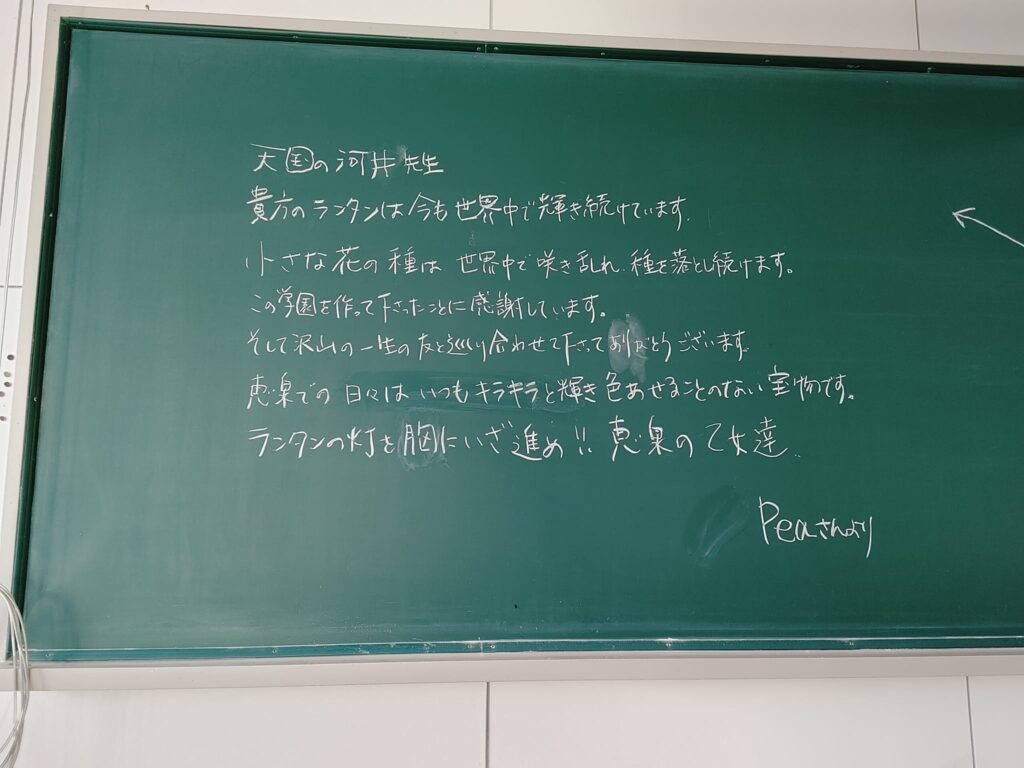 天国の河井先生
貴方のランタンは今も世界中で輝き続けています。
小さな花の種は世界中で咲き乱れ、種を落とし続けます。
この学園を作って下さったことに感謝しています。
そして沢山の一生の友と巡り合わせて下さってありがとうございます。
恵泉での日々はいつもキラキラと輝き色あせることのない宝物です。
ランタンの灯を胸にいざ進め!! 恵泉の乙女達..
Peaさんより